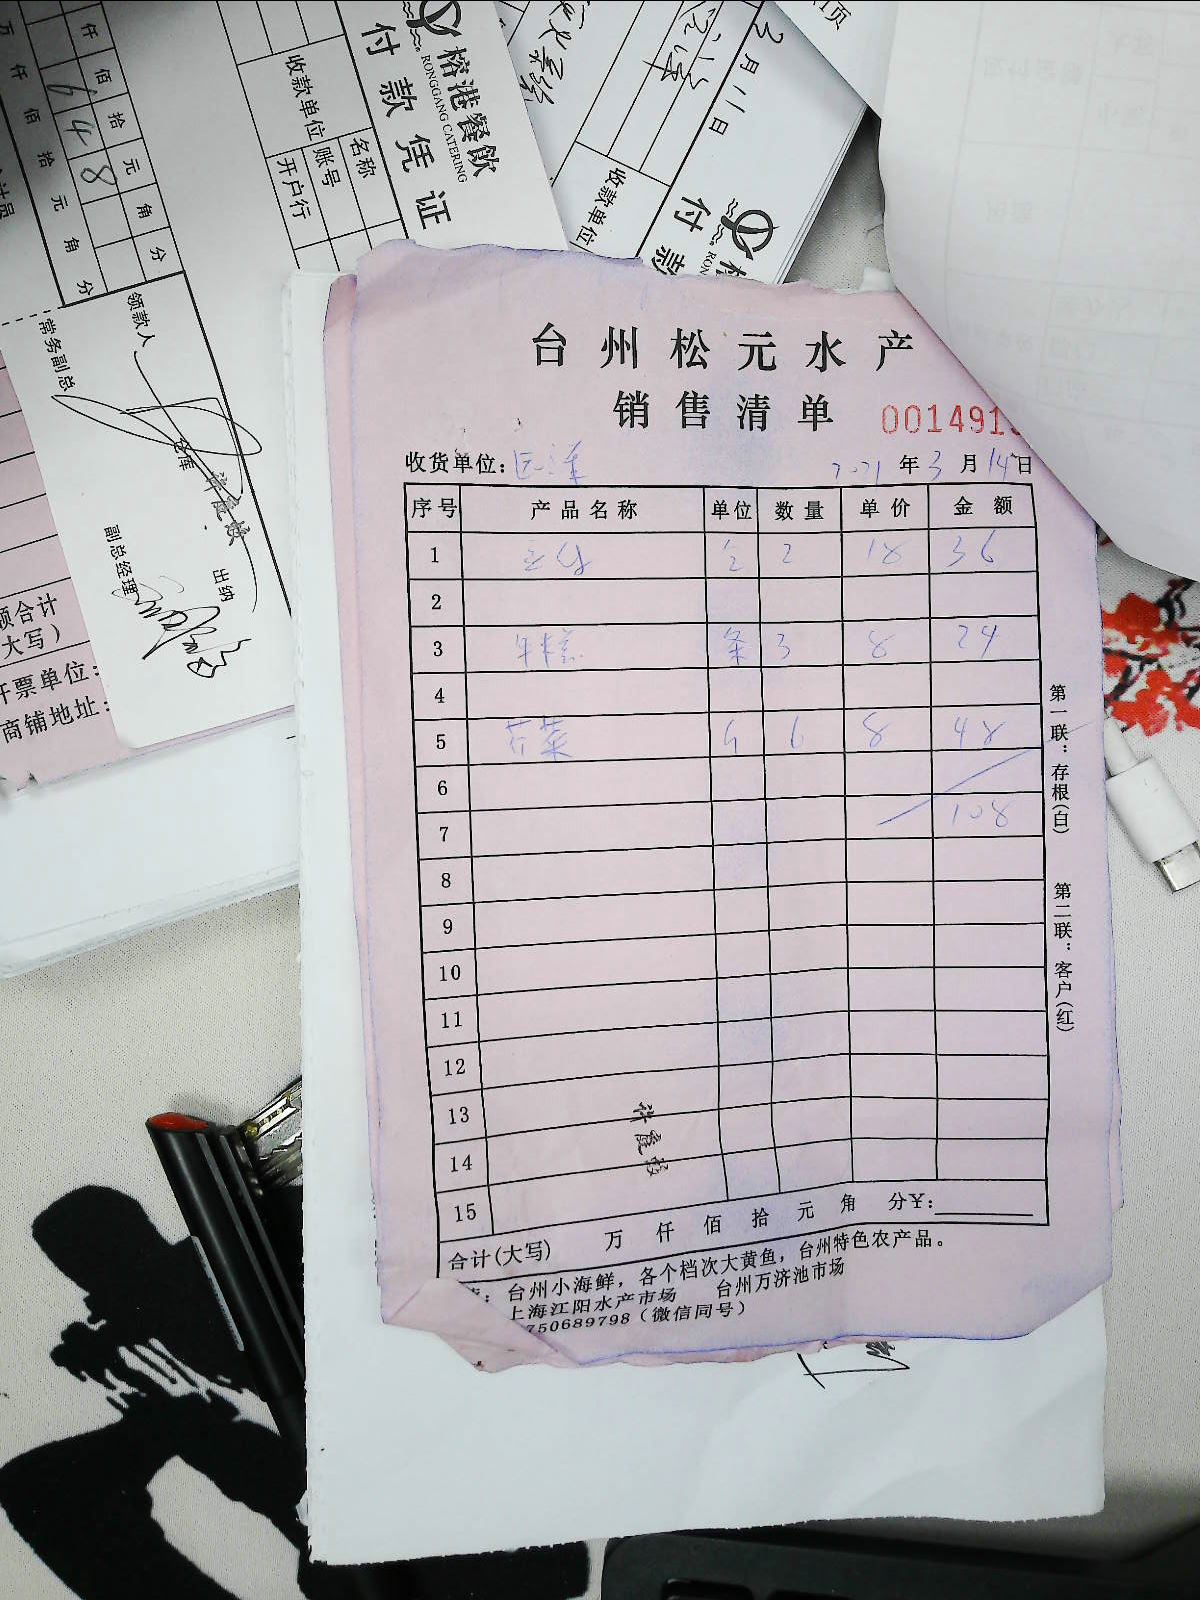 榕港餐飲
RONGGANG CATERING
付款凭证
名称
收款单位 账号
开户行
仟 佰 拾 元 角 分
648
万 仟 佰 拾 元 角 分
领款人
常务副总
仓库 许庭校
副总经理
出纳
3月11日
收款单位
付款
台州松元水产
销售清单
001491
收货单位:
2021年3月14日
序号 产品名称 单位 数量 单价 金额
1 2 18 36
2
3 年糕 条 3 8 24
4
5 6 8 48
6
7 108
8
9
10
11
12
13
14
15
许庭校
合计(大写) 万 仟 佰 拾 元 角 分¥:
台州小海鲜，各个档次大黄鱼，台州特色农产品。
上海江阳水产市场 台州万济池市场
750689798（微信同号）
第一联：存根(白)
第二联：客户(红)
额合计
大写）
开票单位:
商铺地址: